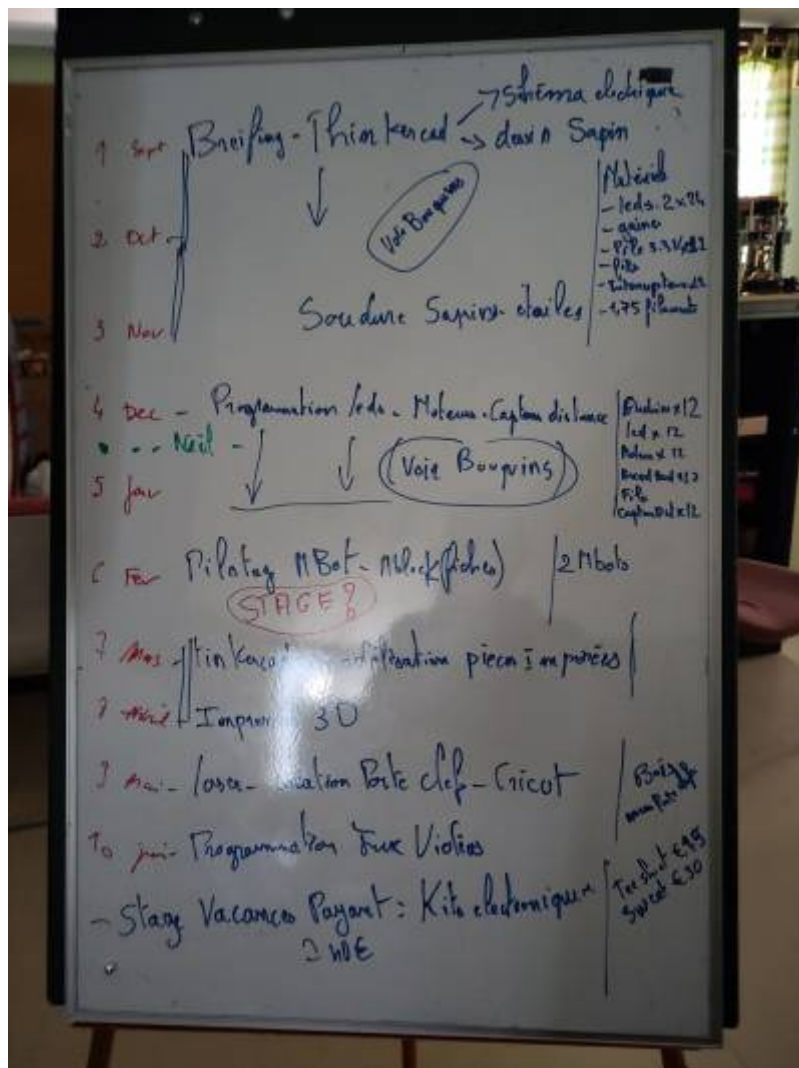 1 Sept Breifing - Thinkercad → Schéma electrique
→ dessin Sapin
Voir Bouquins
Matériels
- leds. 2x24
- gaines
- Pile 3.3V x12
- Fils
- Interrupteur x12
- 1,75 filament
2 Oct
3 Nov
Soudure Sapins - étoiles
4 Dec - Programmation leds - Moteurs - Capteur distance
Noël -
(Voir Bouquins)
5 Jav
x12
led x 12
x 12
Fils
x12
6 Fev Pilotag MBot - Mblock (fiches)
2 Mbots
STAGE ?
7 Mars Tinkercad pieces imposées
Avril Impression 3D
9 Mai - laser - Porte clef - Cricot
Bois
10 juin - Programmation Jeux Vidéos
- Stage Vacances Payant : Kits electronique
Tee shirt €15
Sweet €30